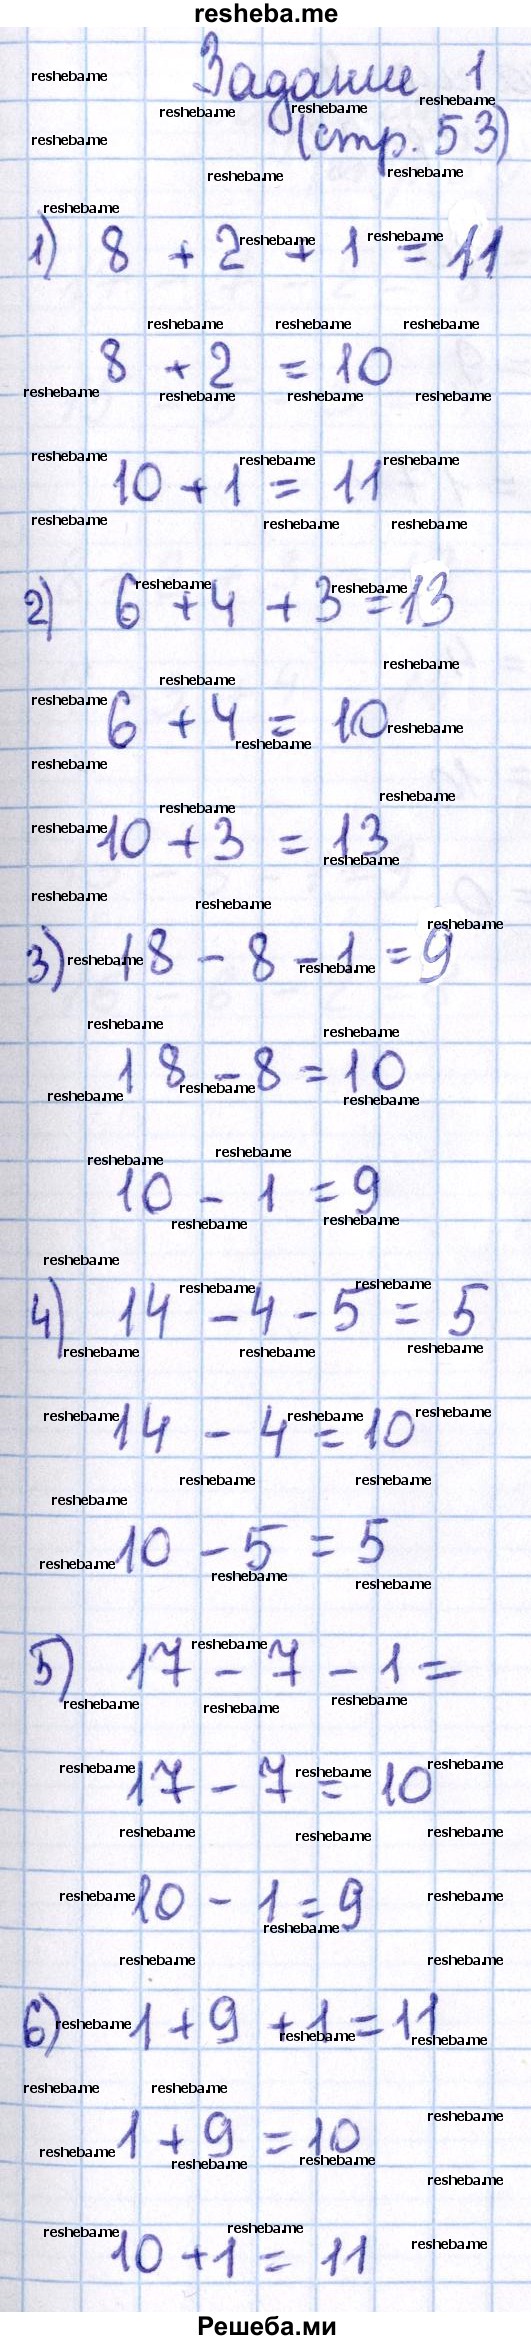 resheba.me
Задание 1
(стр. 53)
1) 8 + 2 + 1 = 11
8 + 2 = 10
10 + 1 = 11
2) 6 + 4 + 3 = 13
6 + 4 = 10
10 + 3 = 13
3) 18 - 8 - 1 = 9
18 - 8 = 10
10 - 1 = 9
4) 14 - 4 - 5 = 5
14 - 4 = 10
10 - 5 = 5
5) 17 - 7 - 1 =
17 - 7 = 10
10 - 1 = 9
6) 1 + 9 + 1 = 11
1 + 9 = 10
10 + 1 = 11
Решеба.ми